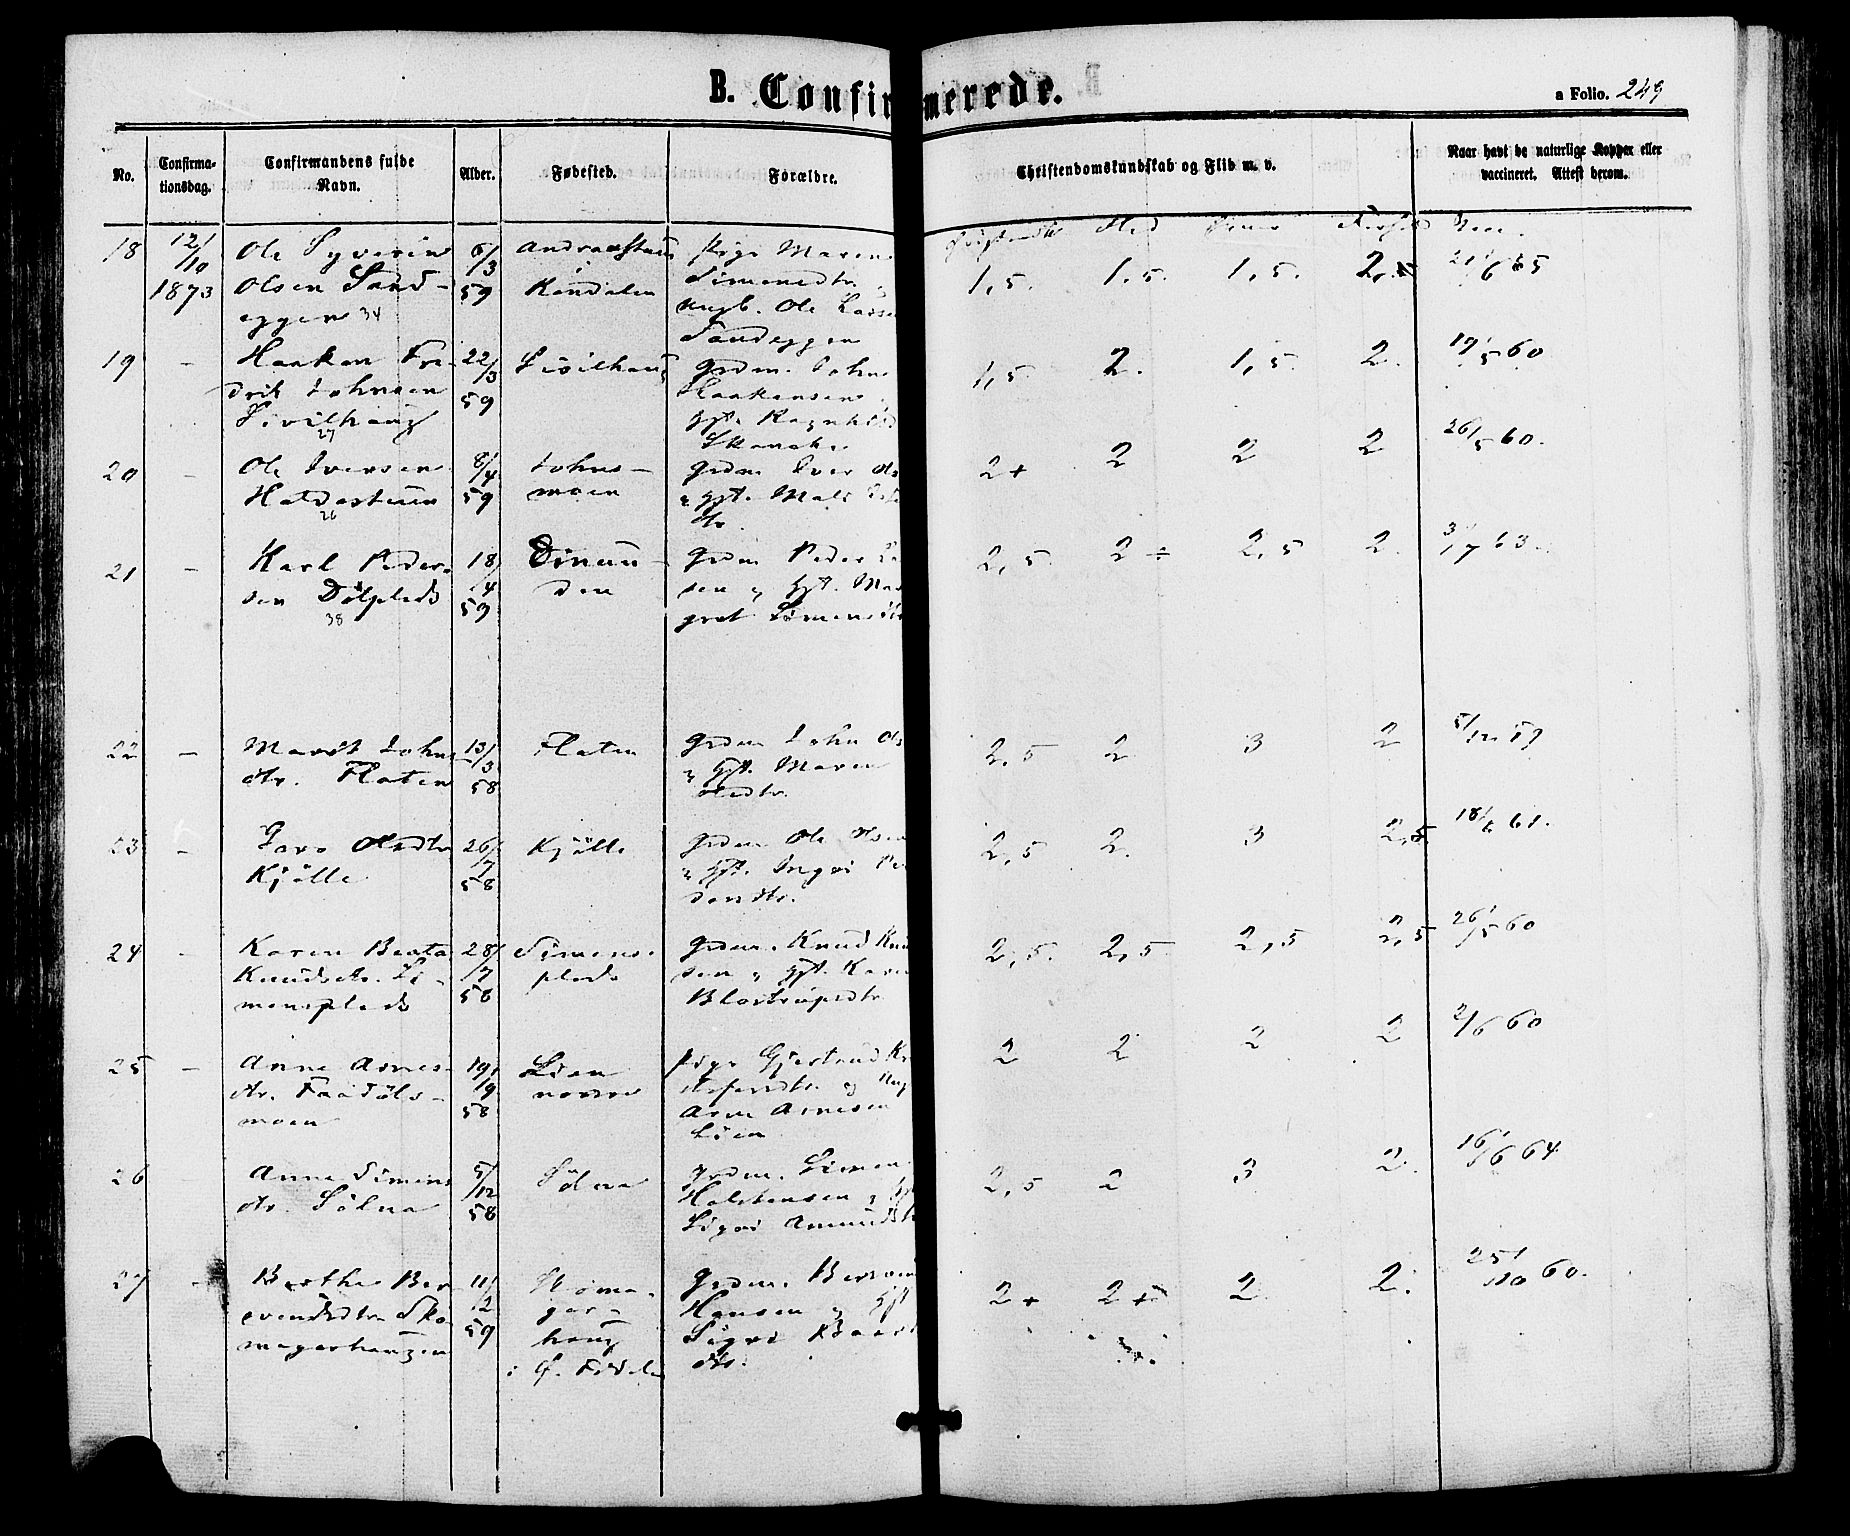 B. Confirmerede.
a Folio. 249
No.
Confirma-
tionsdag.
Confirmandens fulde
Navn.
Alder.
Fødested.
Forældre.
Christendomskundskab og Flid m. v.
Naar havt de naturlige Kopper eller
vaccineret. Attest herom.
Flid
18
12/
/10
1873
Ole Syverin
Olsen Sand-
eggen 34
6/
/3
59
Pige Maren
Simensdtr
Ungk. Ole
Sandeggen
1,5. 1,5. 1,5. 2,5
21/6 65
19 -
Haaken Fre-
drik Johnsen
Sivilhaug
27
22/
/3
59
Sivilhaug
Grdm. John
Haakensen
Gft. Ragnhild
1,5. 2. 1,5. 2.
19/5 60
20 -
Ole Iversen
26
8/
/4
59
Johns-
moen
Grdm Iver Ols
dtr
2+ 2 2 2
26/5 60.
21 -
Karl Peder-
sen Dölplads
38
18/
/4
59
Grdm Peder
sen og Gft. Mar
gret Simensdtr
2,5 2 ÷ 2,5 2.
3/7 63
22 -
Marit Johns
dtr. Flaten
13/
/3
58
Flaten
Grdm John Ols
og Gft. Maren
Olsdtr.
2,5 2 3 2
5/12 59
23 -
Olsdtr
Kjölle
26/
/7
58
Kjölle
Grdm Ole Olsen
og Gft. Ingri Pe
dersdtr.
2,5 2. 3 2,5
18/6 61.
24 -
Karen Beata
Knudsdtr. Si-
mensplads
28/
/7
58
Simens-
plads
Grdm. Knud Knu
sen og Gft. Karen
Blostrupsdtr
2,5. 2,5 2,5 2,5
26/5 60
25 -
Anne Arnes-
dtr.
moen
19/
/9
58
Lien
nordre
Pige Gjertrud Kri
stofersdtr og Ungk
Arne Arnesen
Lien
2 2 2 2
2/6 60
26 -
Anne Simens
dtr. Sölna
5/
/12
58
Sölna
Grdm. Simen
Halstensen og Gft
Sigri Amundsdtr
2,5 2 3 2.
16/6 64
27 -
Berthe Ber
evendsdtr Sko
magerhaugen
11/
/2
59
Skoma-
ger-
haug
i Ø.
Grdm.
Hansen og Gft
Sigri Baard
dtr.
2+ 2+ 2. 2.
25/10 60.